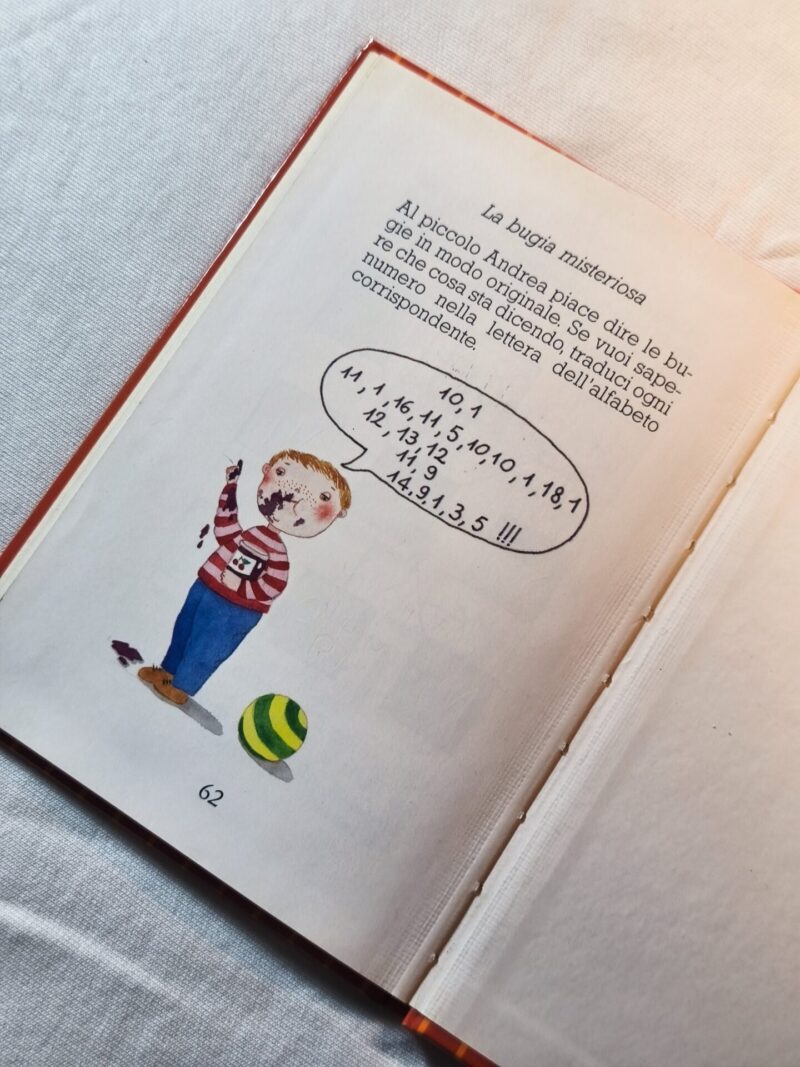 La bugia misteriosa
Al piccolo Andrea piace dire le bu-
gie in modo originale. Se vuoi sape-
re che cosa sta dicendo, traduci ogni
numero nella lettera dell'alfabeto
corrispondente.
10, 1
11, 1, 16, 11, 5, 10, 10, 1, 18, 1
12, 13, 12
11, 9
14, 9, 1, 3, 5 !!!
62